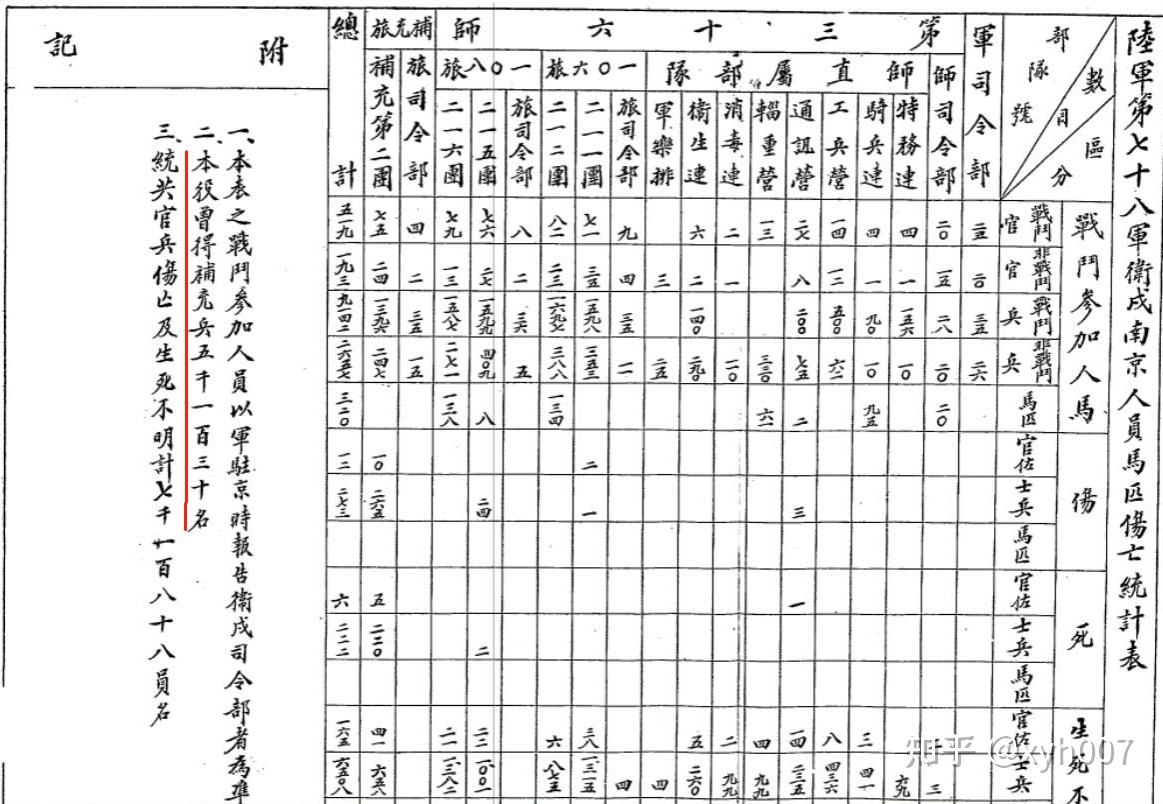 陸軍第七十八軍衛戍南京人員馬匹傷亡統計表
數目
區分
部隊號
戰鬥參加人馬
戰鬥官
非戰鬥官
戰鬥兵
非戰鬥兵
馬匹
傷
官佐
士兵
馬匹
死
官佐
士兵
馬匹
生死不
官佐
士兵
軍司令部 二五 二〇 三五 二六
第三十六師
師司令部 二〇 一五 二八 二〇 二〇 三
師直屬部隊
特務連 四 一 一五六 一〇 六九
騎兵連 四 一 九〇 一〇 九五 三 四一
工兵營 一四 一三 五〇〇 六二 八 四三六
通訊營 二七 八 二〇〇 七五 二 三 一 一四 二三五
輜重營 一三 三三〇 六一 四 九九
消毒連 二 一 一〇 二 九九
衛生連 六 二 一四〇 二九〇 五 二六〇
軍樂排 三 二五 四
一〇六旅
旅司令部 九 四 三五 四
二一一團 七一 三五 一五九八 三五三 二 一 三八 一三一五
二一二團 八二 二三 一六九七 三八八 一三四 六 八七五
一〇八旅
旅司令部 八 二 三六 五
二一五團 七六 二七 一五九九 四〇九 八 二四 二 二二 一〇〇一
二一六團 七九 一三 一五八七 二七一 一三八 二一 一三八二
補充旅
旅司令部 四 二 三五 一五
補充第二團 七五 二四 一三九六 二四七 一〇 二六五 五 二二〇 四一 六五八
總計 五一九 一九三 九一四二 二六五七 三二〇 一二 二七三 六 二二二 一六五 六五〇八
附記
一、本表之戰鬥參加人員以軍駐京時報告衛戍司令部者為準
二、本役曾得補充兵五千一百三十名
三、統共官兵傷亡及生死不明計七千一百八十八員名
知乎 @xyh007